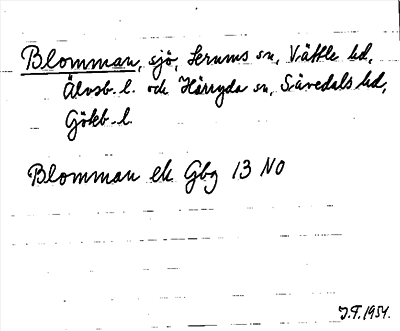 Blomman, sjö, Lerums sn, Vättle hd,
Älvsb. l. och Härryda sn, Sävedals hd,
Göteb. l.
Blomman ek Gbg 13 NO
J.T. 1954.